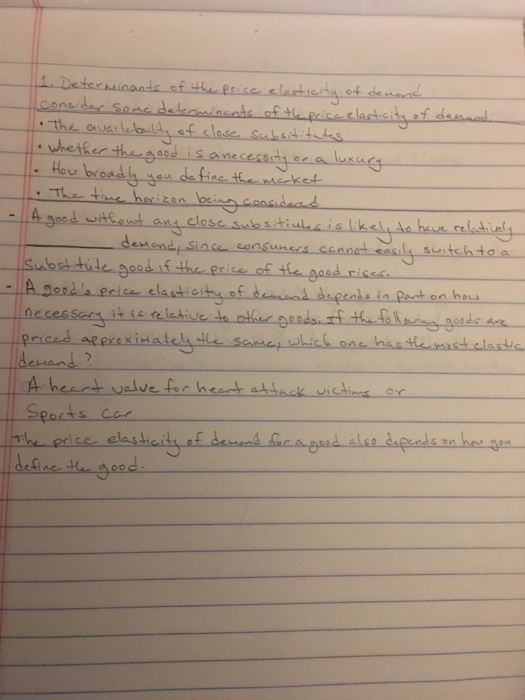 1. Determinants of the price elasticity of demand
consider some determinents of the price elasticity of demand.
• The availability of close subsititutes
• whether the good is a necessity or a luxury
• How broadly you define the market
• The time horizon being considered
- A good without any close subsitiutes is likely to have relatively
________ demand, since consumers cannot easily switch to a
substitute good if the price of the good rises.
- A good's price elasticity of demand depends in part on how
necessary it is relative to other goods. If the following goods are
priced approximately the same, which one has the most elastic
demand?
A heart valve for heart attack victims or
Sports car
The price elasticity of demand for a good also depends on how you
define the good.